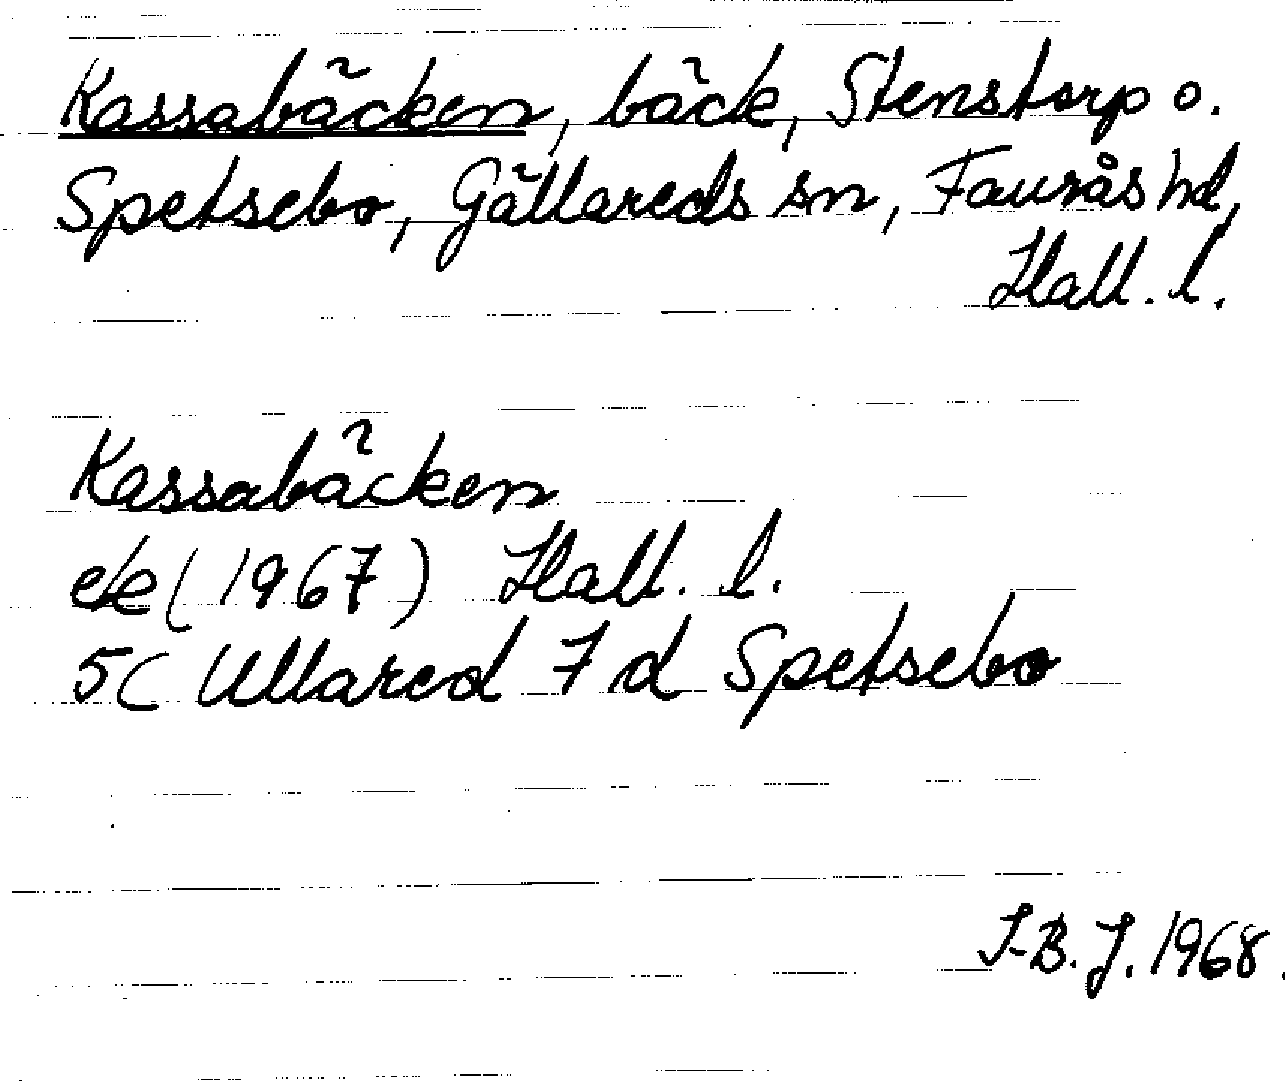 Kassabäcken, bäck, Stenstorp o.
Spetsebo, Gällareds sn, Faurås hd,
Hall. l.
Kassabäcken
ek (1967) Hall. l.
5C Ullared 7 d Spetsebo
I-B. J. 1968.